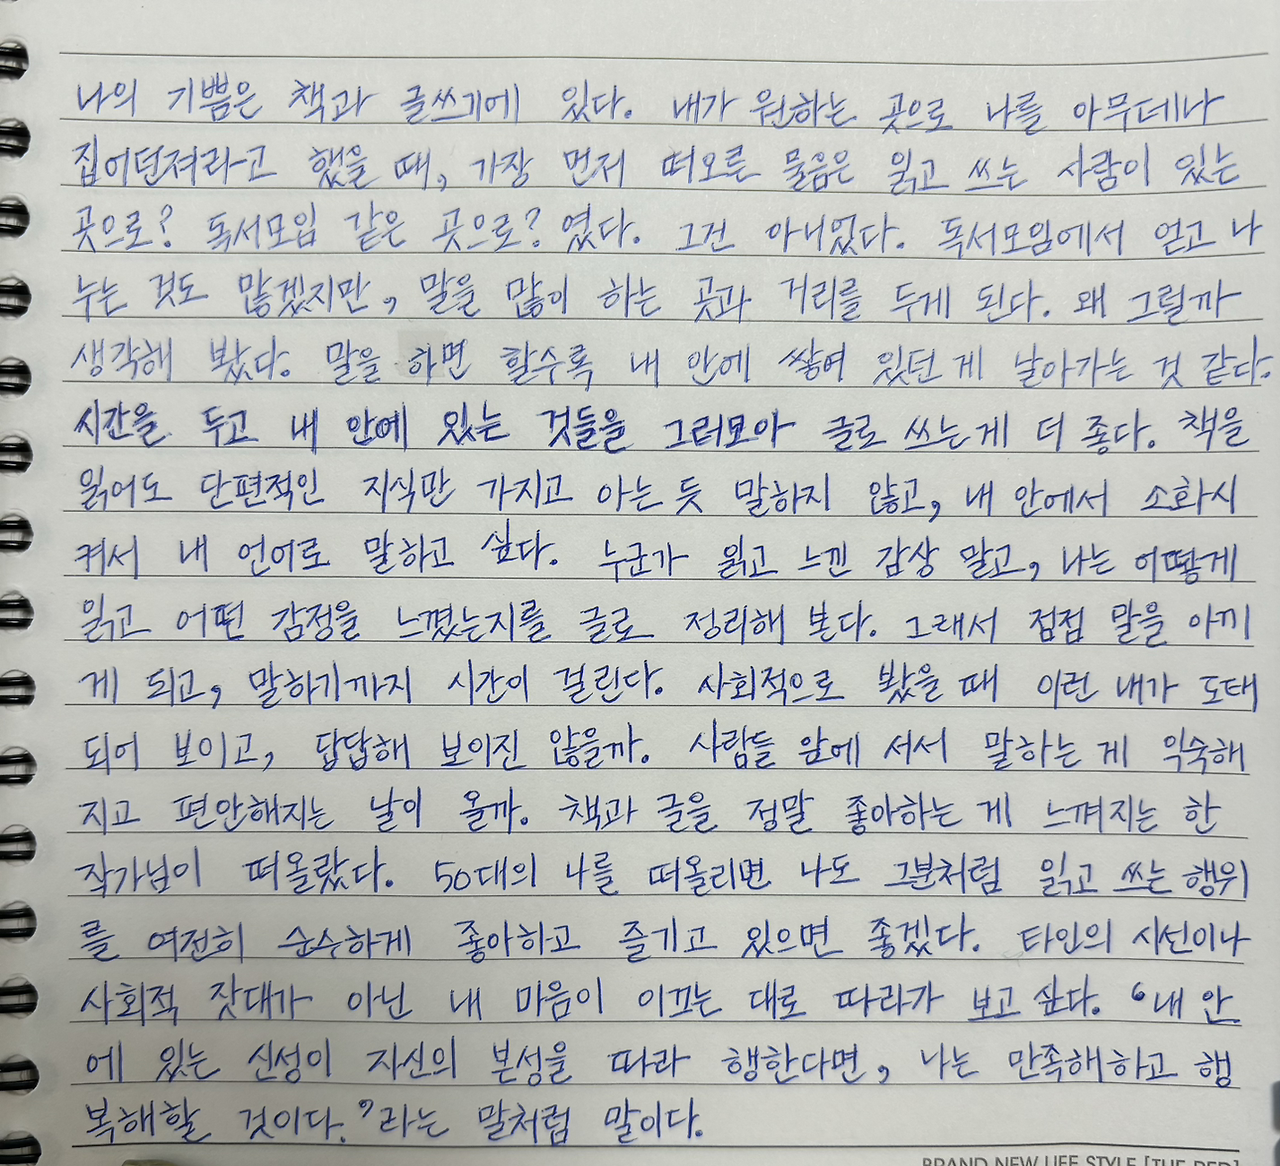 나의 기쁨은 책과 글쓰기에 있다. 내가 원하는 곳으로 나를 아무데나
집어던져라고 했을 때, 가장 먼저 떠오른 물음은 읽고 쓰는 사람이 있는
곳으로? 독서모임 같은 곳으로? 였다. 그건 아니었다. 독서모임에서 얻고 나
누는 것도 많겠지만, 말을 많이 하는 곳과 거리를 두게 된다. 왜 그럴까
생각해 봤다. 말을 하면 할수록 내 안에 쌓여 있던 게 날아가는 것 같다.
시간을 두고 내 안에 있는 것들을 그러모아 글로 쓰는게 더 좋다. 책을
읽어도 단편적인 지식만 가지고 아는 듯 말하지 않고, 내 안에서 소화시
켜서 내 언어로 말하고 싶다. 누군가 읽고 느낀 감상 말고, 나는 어떻게
읽고 어떤 감정을 느꼈는지를 글로 정리해 본다. 그래서 점점 말을 아끼
게 되고, 말하기까지 시간이 걸린다. 사회적으로 봤을 때 이런 내가 도태
되어 보이고, 답답해 보이진 않을까. 사람들 앞에 서서 말하는 게 익숙해
지고 편안해지는 날이 올까. 책과 글을 정말 좋아하는 게 느껴지는 한
작가님이 떠올랐다. 50대의 나를 떠올리면 나도 그분처럼 읽고 쓰는 행위
를 여전히 순수하게 좋아하고 즐기고 있으면 좋겠다. 타인의 시선이나
사회적 잣대가 아닌 내 마음이 이끄는 대로 따라가 보고 싶다. “내 안
에 있는 신성이 자신의 본성을 따라 행한다면, 나는 만족해하고 행
복해할 것이다.”라는 말처럼 말이다.
BRAND NEW LIFE STYLE [THE RED]